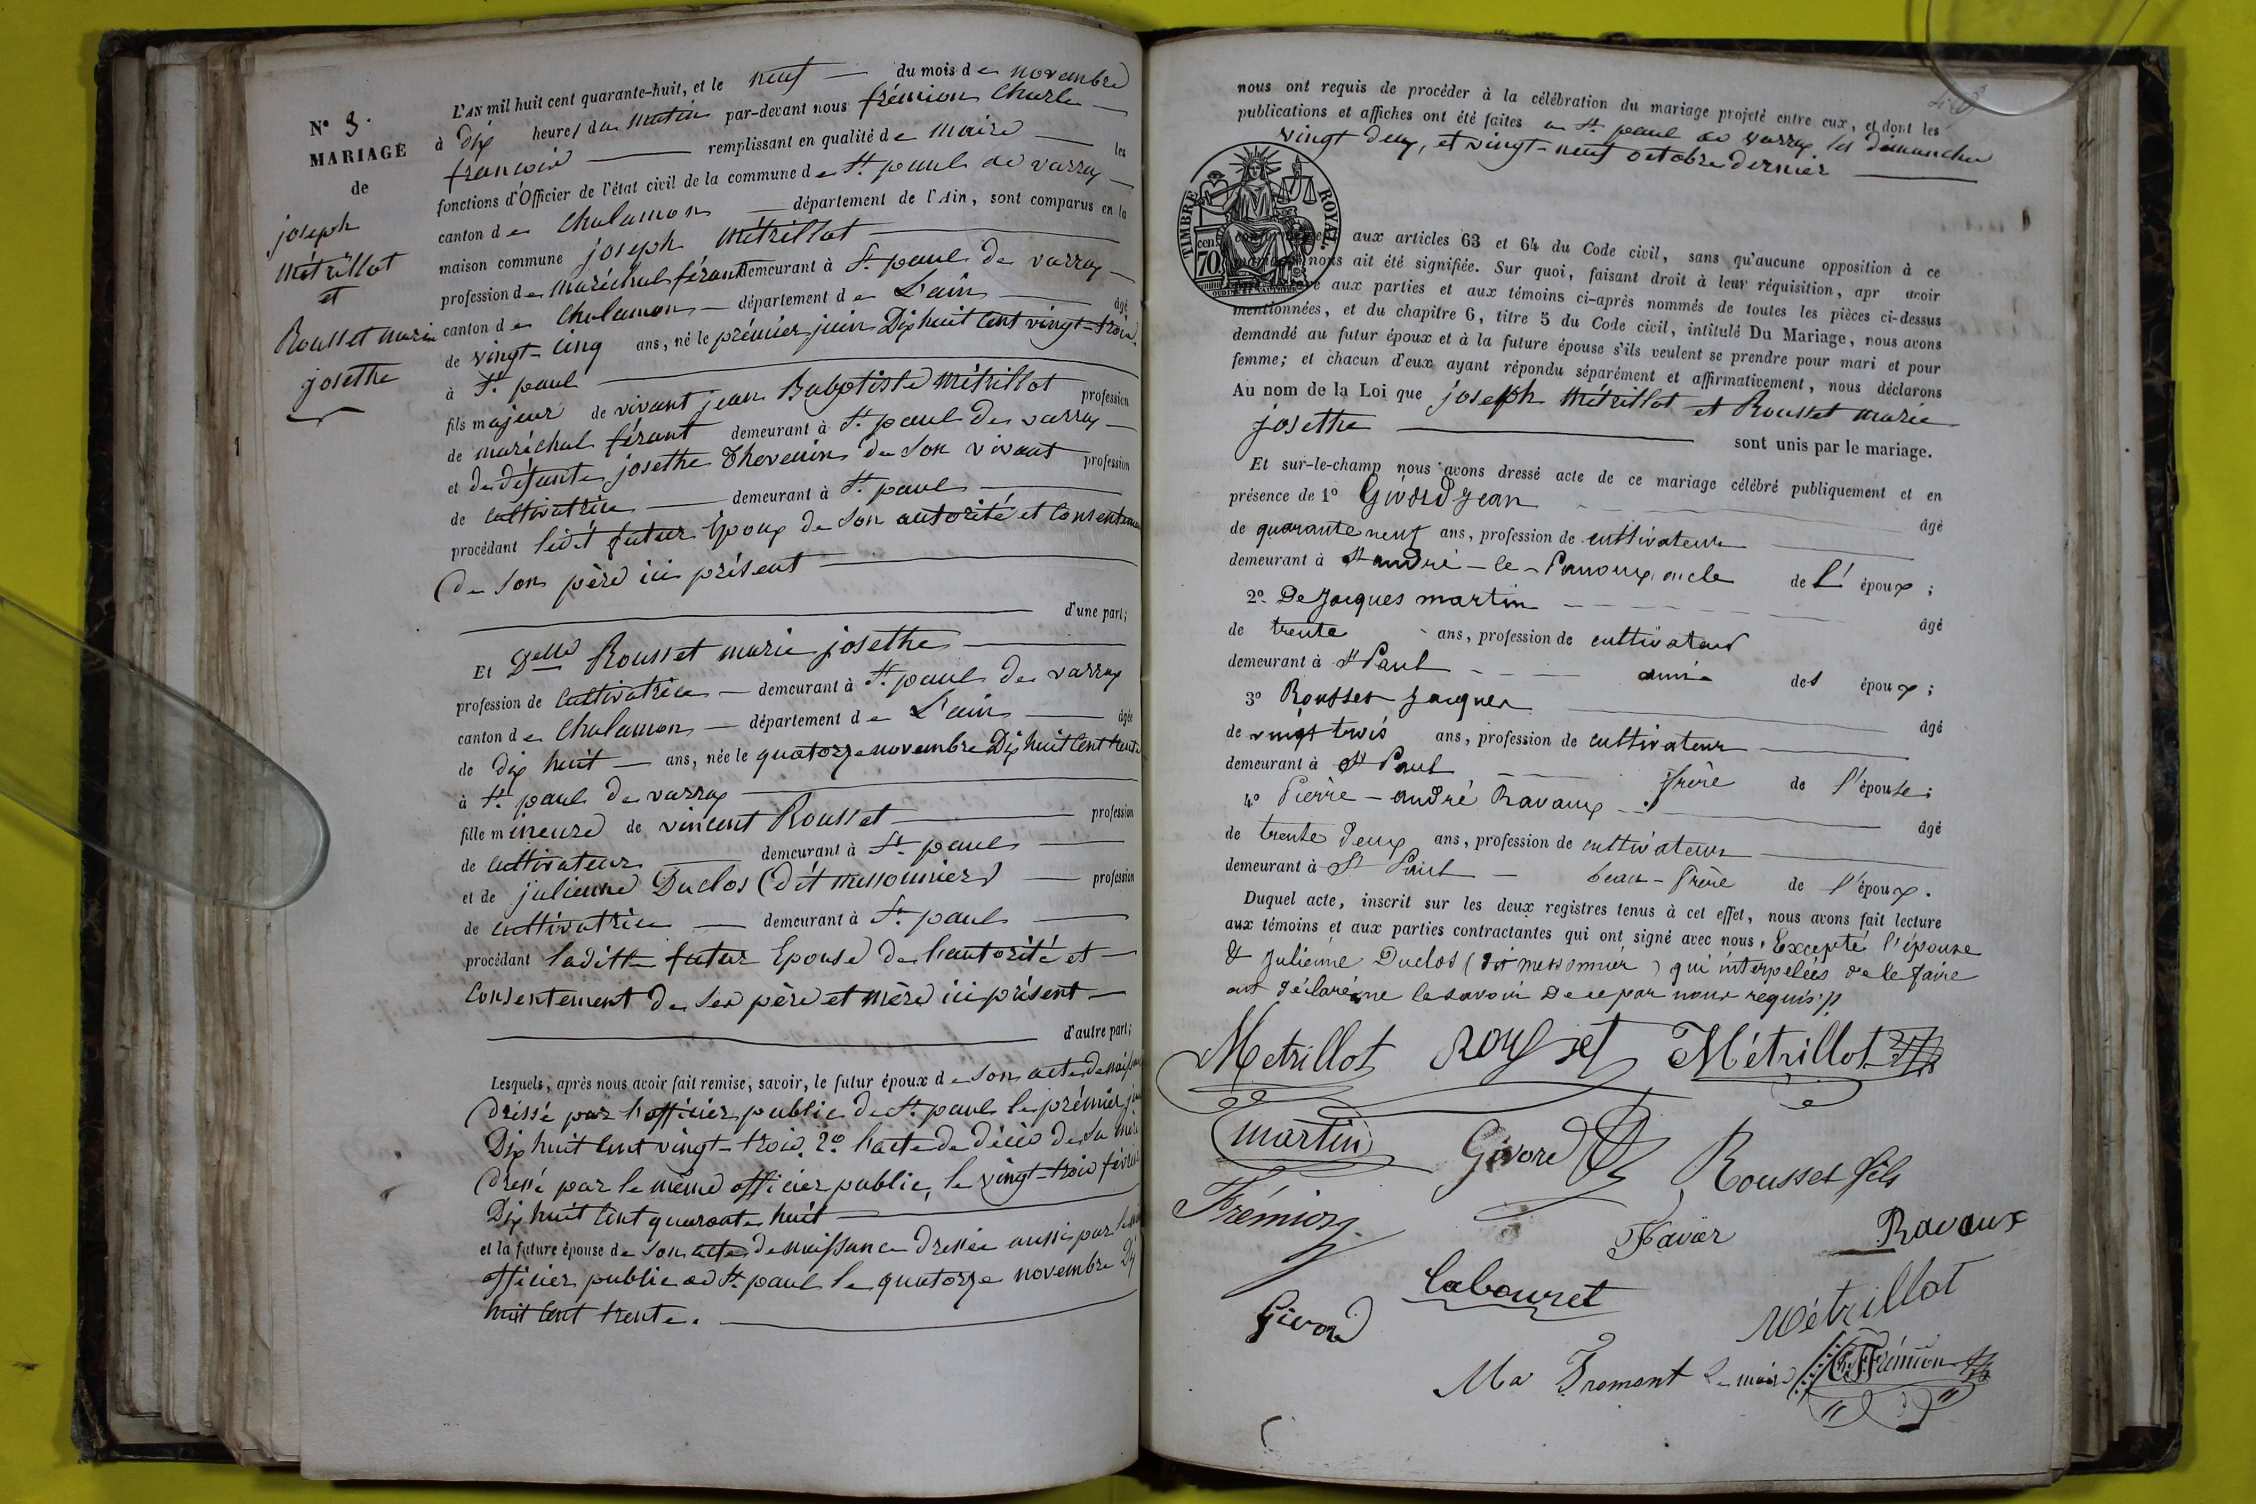 N° 3.
MARIAGE
de
joseph
Métrillot
et
Rousset marie
josethe
L'AN mil huit cent quarante-huit, et le neuf du mois de novembre
à dix heures du matin par-devant nous frémion Charle
francois remplissant en qualité de maire les
fonctions d'Officier de l'état civil de la commune de St. paul de varax
canton de Chalamon département de l'Ain, sont comparus en la
maison commune joseph Métrillot
profession de maréchal férant demeurant à St. paul de varax
canton de Chalamon département de L'ain âgé
de vingt-cinq ans, né le prémier juin Dix huit Cent vingt-trois,
à St. paul
fils majeur de vivant jean Baptiste Métrillot profession
de maréchal férant demeurant à St. paul de varax
et de défunte josethe Thevenin de son vivant profession
de cultivatrice demeurant à St. paul
procédant ledit futur époux de son autorité et Consentement
de son père ici présent
d'une part;
Et Delle Rousset marie josethe
profession de Cultivatrice demeurant à St. paul de varax
canton de Chalamon département de L'ain âgée
de dix huit ans, née le quatorze novembre Dix huit Cent trente
à St. paul de varax
fille mineure de vincent Rousset profession
de cultivateur demeurant à St. paul
et de julienne Duclos (dit messonnier) profession
de cultivatrice demeurant à St. paul
procédant laditte futur Epouse de l'autorité et
Consentement de ses père et mère ici présent
d'autre part;
Lesquels, après nous avoir fait remise, savoir, le futur époux de son acte de naissance
dréssé par l'officier public de St. paul le prémier juin
Dix huit Cent vingt-trois. 2° l'acte de décès de sa mère
dressé par le même officier public, le vingt-trois février
Dix huit Cent quarante huit
et la future épouse de son acte de naissance dressée aussi par le même
officier public de St. paul le quatorze novembre Dix
huit Cent trente.
nous ont requis de procéder à la célébration du mariage projeté entre eux, et dont les
publications et affiches ont été faites à St. paul de varax les dimanches
vingt deux, et vingt-neuf octobre dernier
TIMBRE ROYAL
cen. 70
aux articles 63 et 64 du Code civil, sans qu'aucune opposition à ce
nous ait été signifiée. Sur quoi, faisant droit à leur réquisition, apr avoir
aux parties et aux témoins ci-après nommés de toutes les pièces ci-dessus
mentionnées, et du chapitre 6, titre 5 du Code civil, intitulé Du Mariage, nous avons
demandé au futur époux et à la future épouse s'ils veulent se prendre pour mari et pour
femme; et chacun d'eux ayant répondu séparément et affirmativement, nous déclarons
Au nom de la Loi que joseph Métrillot et Rousset marie
josethe sont unis par le mariage.
Et sur-le-champ nous avons dressé acte de ce mariage célébré publiquement et en
présence de 1° Givord jean âgé
de quarante neuf ans, profession de cultivateur
demeurant à St andré-le-Panoux oncle de L' époux;
2°. De jacques martin âgé
de trente ans, profession de cultivateur
demeurant à St Paul ami des époux;
3° Rousset jacques âgé
de vingt trois ans, profession de cultivateur
demeurant à St Paul frère de l'épouse;
4° Pierre-andré Ravaux âgé
de trente deux ans, profession de cultivateur
demeurant à St Paul beau-frère de l'époux.
Duquel acte, inscrit sur les deux registres tenus à cet effet, nous avons fait lecture
aux témoins et aux parties contractantes qui ont signé avec nous, Excepté l'épouse
& Julienne Duclos (dit messonnier) qui interpelées de le faire
ont déclaré ne le savoir de ce par nous requis.//.
Metrillot rousset Métrillot
martin Givord Rousset fils
Frémion Favier Ravaux
Labouret
Givord Métrillot
Ma Fromont Le maire Ch. F. Frémion